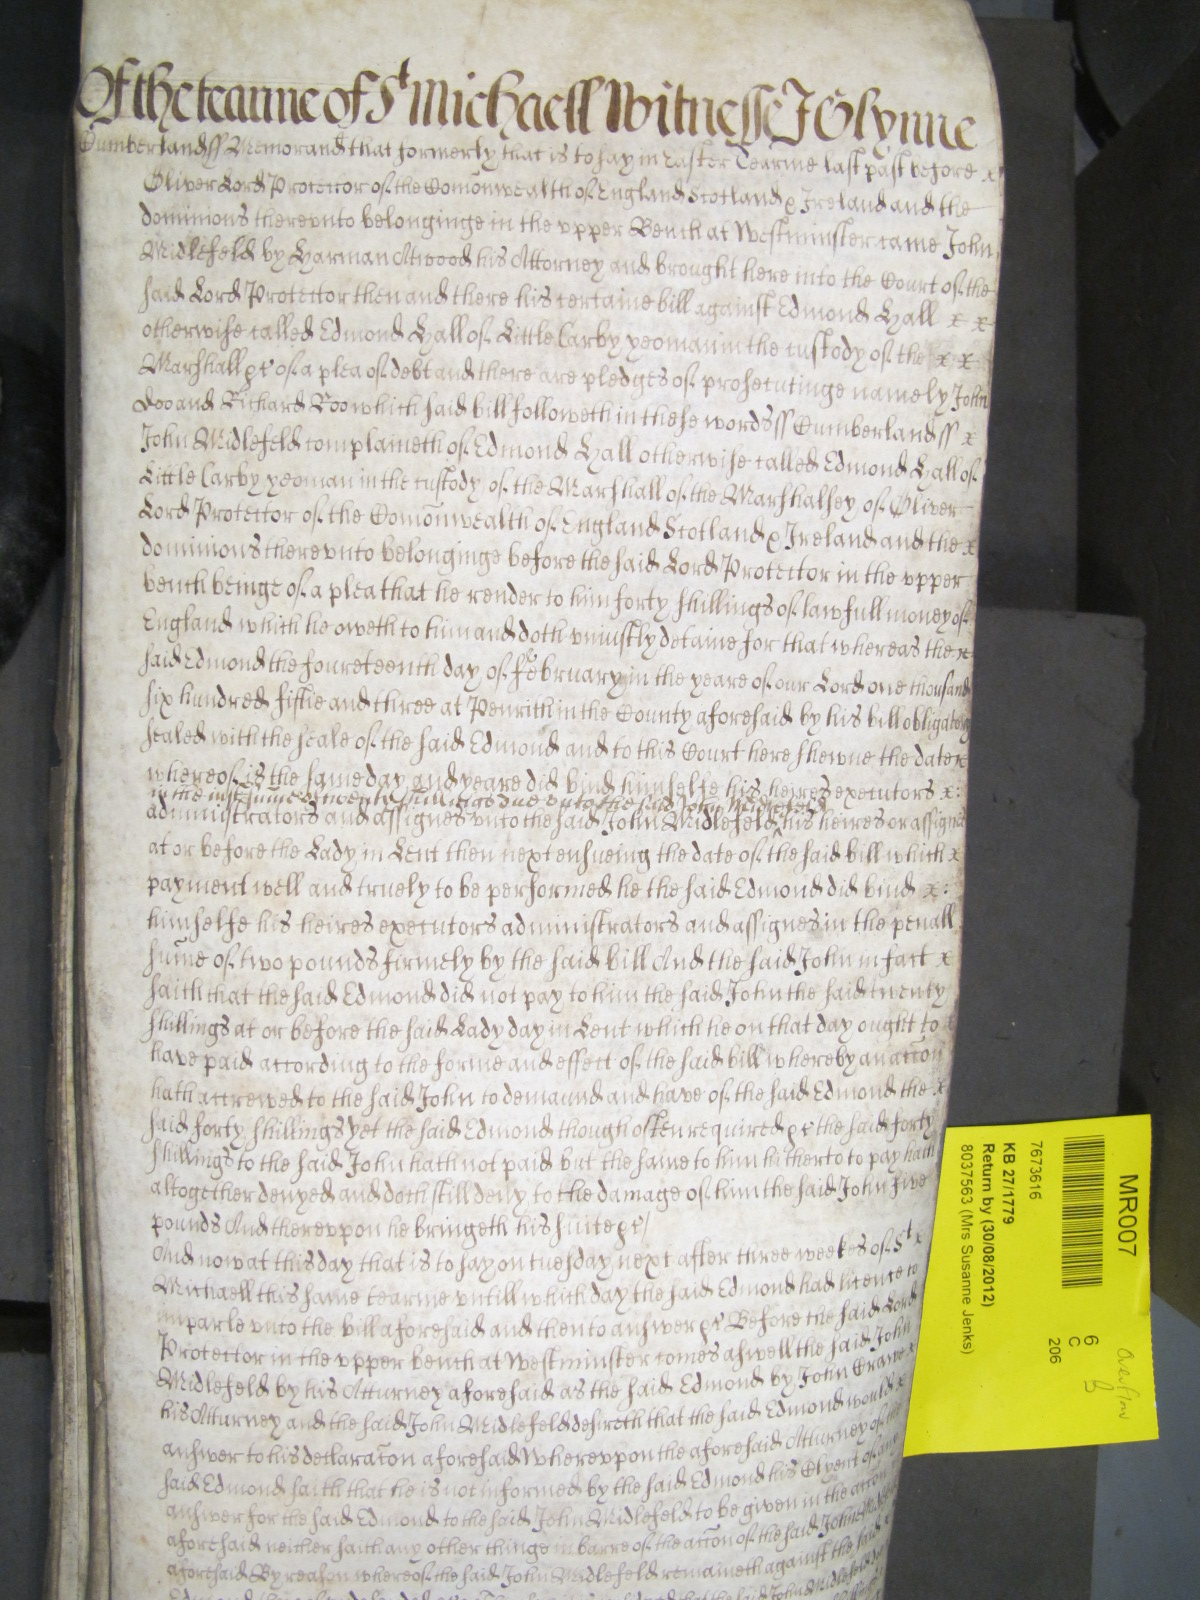 Of the tearme of St Michaell Witnesse J Glynne
Cumberland ss Memorand that formerly that is to say in Easter Tearme last past before x
Oliver Lord Protector of the Comonwealth of England Scotland & Ireland and the
dominions therevnto belonginge in the vpper Bench at Westminster came John
Midlefeld by Harman Atwood his Attorney and brought here into the Court of the
said Lord Protector then and there his certaine bill against Edmond Hall x x
otherwise called Edmond Hall of Little Carby yeoman in the custody of the x x
Marshall &c of a plea of debt and there are pledges of prosecutinge namely John
Doo and Richard Roo which said bill followeth in these words ss Cumberland ss x
John Midlefeld complaineth of Edmond Hall otherwise called Edmond Hall of
Little Carby yeoman in the custody of the Marshall of the Marshalsey of Oliver
Lord Protector of the Comonwealth of England Scotland & Ireland and the x
dominions therevnto belonginge before the said Lord Protector in the vpper
bench beinge of a plea that he render to him forty shillings of lawfull money of
England which he oweth to him and doth vniustly detaine for that whereas the x
said Edmond the fourteenth day of February in the yeare of our Lord one thousand
six hundred fiftie and three at Penrith in the County aforesaid by his bill obligatory
sealed with the seale of the said Edmond and to this Court here shewne the date x
whereof is the same day and yeare did bind himselfe his heires executors x:
in the iust sume of twenty shillings due vnto the said John Midlefeld
administrators and assignes vnto the said John Midlefeld his heires or assignes
at or before the Lady in Lent then next ensueing the date of the said bill which x
payment well and truely to be performed he the said Edmond did bind x:
himselfe his heires executors administrators and assignes in the penall
sume of two pounds firmely by the said bill And the said John in fact x
saith that the said Edmond did not pay to him the said John the said twenty
shillings at or before the said Lady day in Lent which he on that day ought to x
have paid according to the forme and effect of the said bill whereby an accon
hath accrewed to the said John to demaund and have of the said Edmond the x
said forty shillings yet the said Edmond though often required &c the said forty
shillings to the said John hath not paid but the same to him hitherto to pay hath
altogether denyed and doth still deny to the damage of him the said John five
pounds And therevpon he bringeth his suite &c/
And now at this day that is to say on tuesday next after three weekes of St x
Michaell this same tearme vntill which day the said Edmond had licence to
imparle vnto the bill aforesaid and then to answer &c Before the said Lord
Protector in the vpper bench at Westminster comes aswell the said John
Midlefeld by his Atturney aforesaid as the said Edmond by John Crane x
his Atturney and the said John Midlefeld desireth that the said Edmond would x
answer to his declaraton aforesaid Wherevpon the aforesaid Atturney of the
said Edmond saith that he is not informed by the said Edmond his Clyent of any
answer for the said Edmond to the said John Midlefeld to be given in the accon
aforesaid neither saith any other thinge in barre of the accon of the said John
aforesaid By reason whereof the said John Midlefeld remaineth against the said
Edmond that the said John Midlefeld
MR007
7673616
KB 27/1779
Return by (30/08/2012)
8037563 (Mrs Susanne Jenks)
6
C
206
Overflow
B